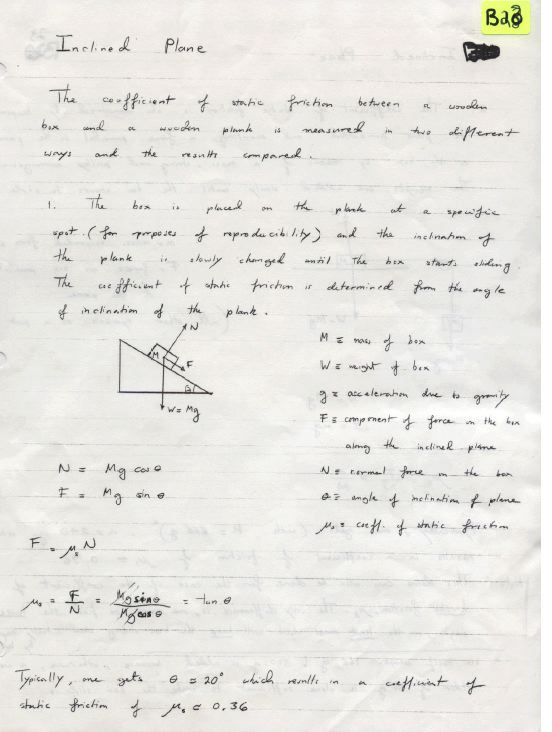 B28
Inclined Plane
The coefficient of static friction between a wooden
box and a wooden plank is measured in two different
ways and the results compared.
1. The box is placed on the plank at a specific
spot (for purposes of reproducibility) and the inclination of
the plank is slowly changed until the box starts sliding.
The coefficient of static friction is determined from the angle
of inclination of the plank.
N
M
F
θ
W = Mg
M ≡ mass of box
W ≡ weight of box
g ≡ acceleration due to gravity
F ≡ component of force on the box
along the inclined plane
N ≡ normal force on the box
θ ≡ angle of inclination of plane
μs ≡ coeff. of static friction
N = Mg cos θ
F = Mg sin θ
F = μs N
μs = F/N = Mg sin θ / Mg cos θ = tan θ
Typically, one gets θ ≅ 20° which results in a coefficient of
static friction of μs ≅ 0.36